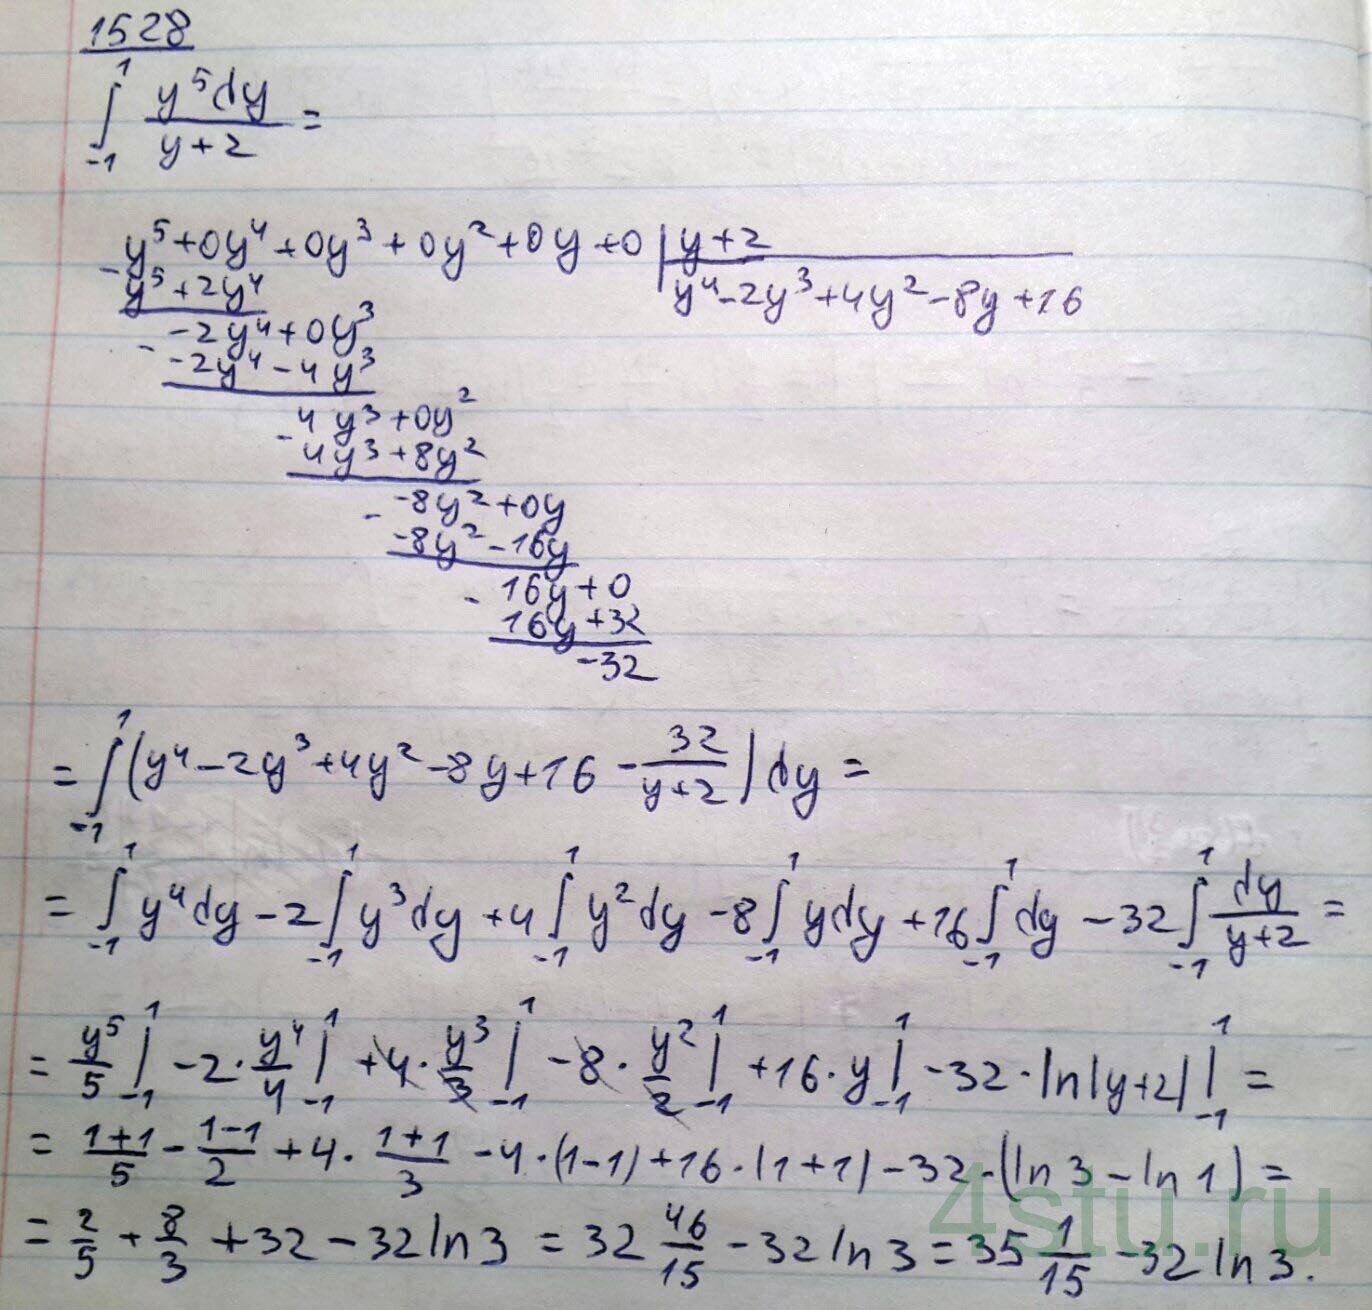 1528
∫₋₁¹ y⁵dy/(y+2) =
y⁵+0y⁴+0y³+0y²+0y+0 | y+2
-
y⁵+2y⁴ | y⁴-2y³+4y²-8y+16
-2y⁴+0y³
-
-2y⁴-4y³
4y³+0y²
-
4y³+8y²
-8y²+0y
-
-8y²-16y
16y+0
-
16y+32
-32
= ∫₋₁¹ (y⁴-2y³+4y²-8y+16 - 32/(y+2)) dy =
= ∫₋₁¹ y⁴dy - 2∫₋₁¹ y³dy + 4∫₋₁¹ y²dy - 8∫₋₁¹ ydy + 16∫₋₁¹ dy - 32∫₋₁¹ dy/(y+2) =
= y⁵/5 |₋₁¹ - 2·y⁴/4 |₋₁¹ + 4·y³/3 |₋₁¹ - 8·y²/2 |₋₁¹ + 16·y |₋₁¹ - 32·ln|y+2| |₋₁¹ =
= (1+1)/5 - (1-1)/2 + 4·(1+1)/3 - 4·(1-1) + 16·(1+1) - 32·(ln 3 - ln 1) =
= 2/5 + 8/3 + 32 - 32 ln 3 = 32 46/15 - 32 ln 3 = 35 1/15 - 32 ln 3.
4stu.ru